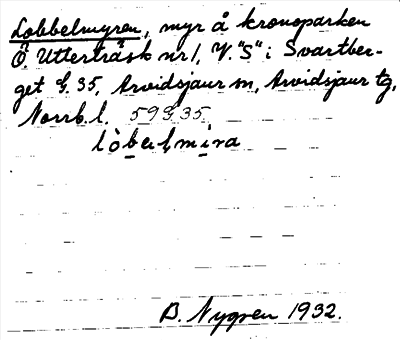 Lobbelmyren, myr å kronoparken
Ö. Utterträsk nr 1, V. "S" i Svartber-
get G. 35, Arvidsjaur sn, Arvidsjaur tg,
Norrb. l. 59 G 35
lòbelmira
B. Nygren 1932.